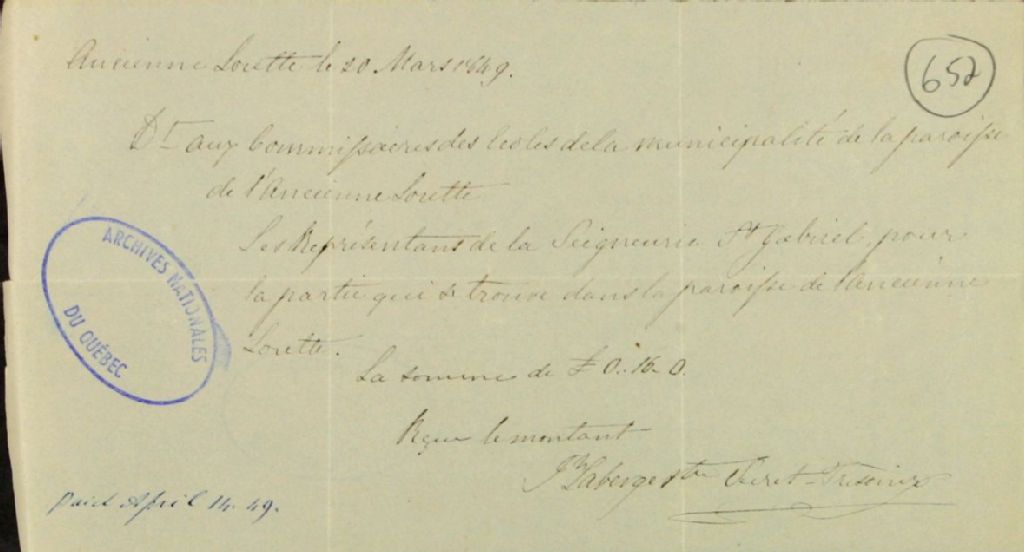 Ancienne Lorette le 20 Mars 1849.
652
Dt aux Commissaires des Ecoles de la municipalité de la paroisse
de l'Ancienne Lorette
Les Représentans de la Seigneurie St Gabriel, pour
la partie qui se trouve dans la paroisse de l'Ancienne
Lorette.
La somme de £ 0. 16. 0.
Reçu le montant
Laberge Ptre Secret-Trésorier
ARCHIVES NATIONALES
DU QUÉBEC
Paid April 14. 49.